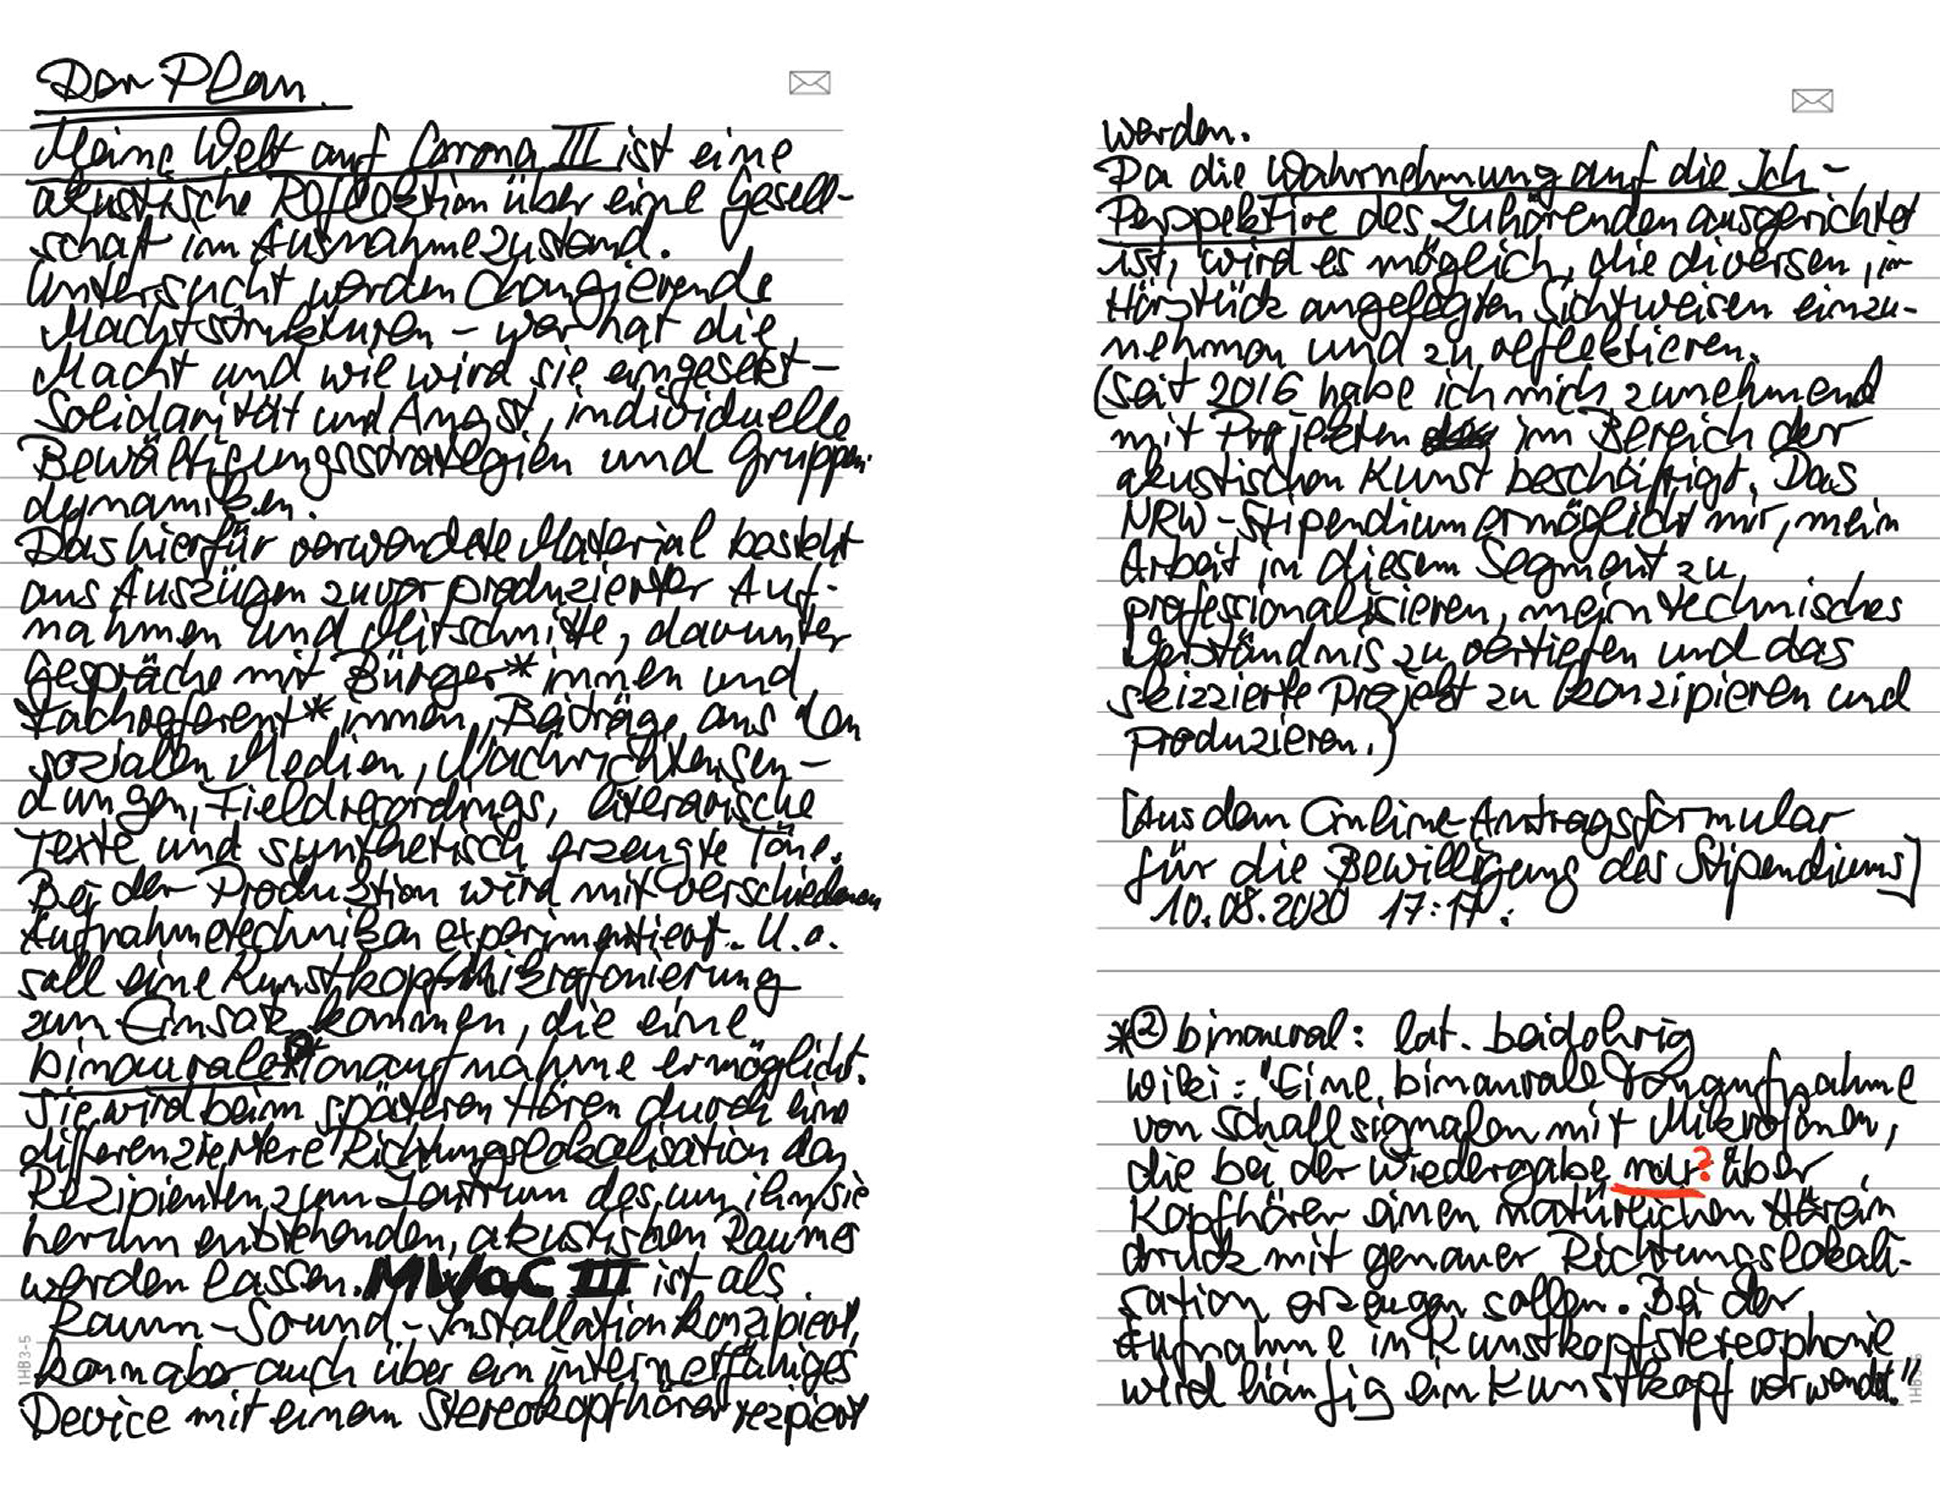 Der Plan.
Meine Welt auf Corona III ist eine
akustische Reflektion über eine Gesell-
schaft im Ausnahmezustand.
Untersucht werden changierende
Machtstrukturen – wer hat die
Macht und wie wird sie eingesetzt –
Solidarität und Angst, individuelle
Bewältigungsstrategien und Gruppen-
dynamiken.
Das hierfür verwendete Material besteht
aus Auszügen zuvor produzierter Auf-
nahmen und Mitschnitte, darunter
Gespräche mit Bürger*innen und
Fachreferent*innen, Beiträge aus den
sozialen Medien, Nachrichtensen-
dungen, Fieldrecordings, literarische
Texte und synthetisch erzeugte Töne.
Bei der Produktion wird mit verschiedenen
Aufnahmetechniken experimentiert. U.a.
soll eine Kunstkopf-Mikrofonierung
zum Einsatz kommen, die eine
binaurale*② Tonaufnahme ermöglicht.
Sie wird beim späteren Hören durch eine
differenziertere Richtungslokalisation den
Rezipienten zum Zentrum des um ihn/sie
herum entstehenden, akustischen Raumes
werden lassen. MWaC III ist als
Raum-Sound-Installation konzipiert,
kann aber auch über ein internetfähiges
Device mit einem Stereokopfhörer rezipiert
1HB3-5
werden.
Da die Wahrnehmung auf die Ich-
Perspektive des Zuhörenden ausgerichtet
ist, wird es möglich, die diversen, im
Hörstück angelegten Sichtweisen einzu-
nehmen und zu reflektieren.
(Seit 2016 habe ich mich zunehmend
mit Projekten im Bereich der
akustischen Kunst beschäftigt. Das
NRW-Stipendium ermöglicht mir, mein
Arbeit in diesem Segment zu
professionalisieren, mein technisches
Verständnis zu vertiefen und das
skizzierte Projekt zu konzipieren und
produzieren.)
[Aus dem Online-Antragsformular
für die Bewilligung des Stipendiums]
10.08.2020 17:17.
*② binaural: lat. beidohrig
Wiki: "Eine binaurale Tonaufnahme
von Schallsignalen mit Mikrofonen,
die bei der Wiedergabe nur? über
Kopfhörer einen natürlichen Hörein
druck mit genauer Richtungslokali-
sation erzeugen sollen. Bei der
Aufnahme in Kunstkopfstereophonie
wird häufig ein Kunstkopf verwendet."